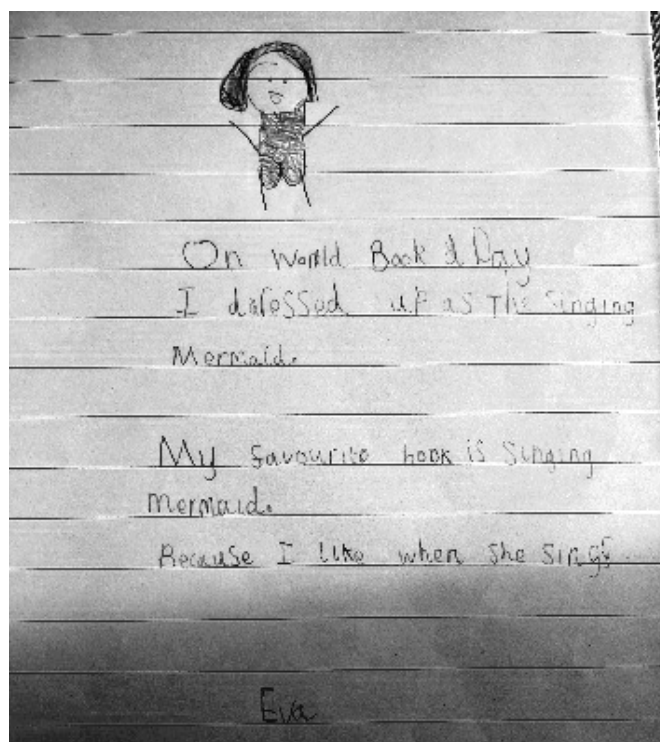 On World Book d Day
I dressed up as The Singing
Mermaid.
My favourite book is Singing
mermaid.
Because I like when she sings
Eva